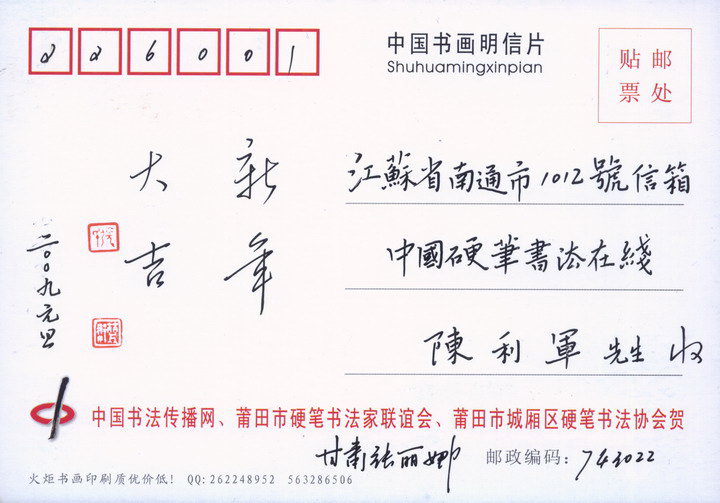 226001
中国书画明信片
Shuhuamingxinpian
贴邮
票处
新年
大吉
二00九元旦
江蘇省南通市1012號信箱
中國硬筆書法在綫
陳利軍先生收
中国书法传播网、莆田市硬笔书法家联谊会、莆田市城厢区硬笔书法协会贺
甘肃张丽娜
邮政编码：743022
火炬书画印刷质优价低！ QQ:262248952 563286506